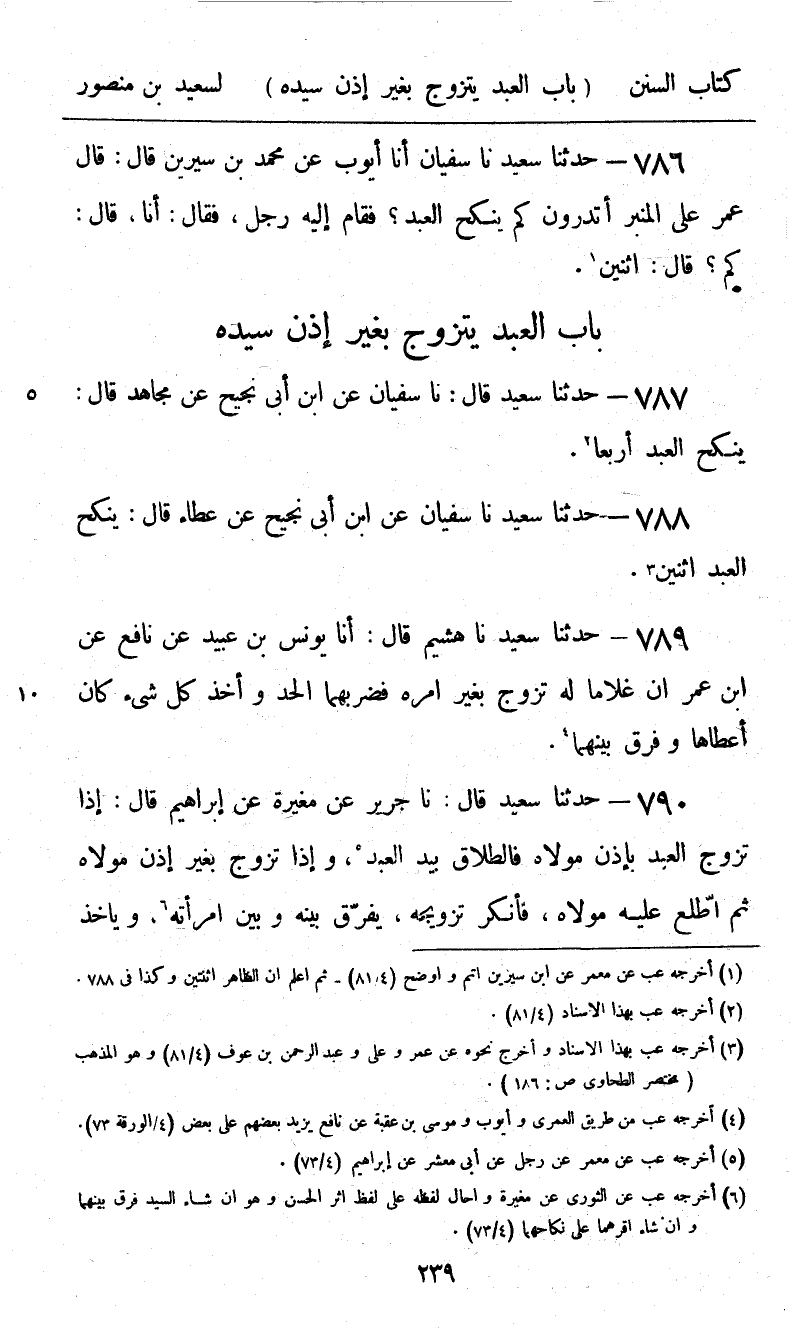 كتاب السنن ( باب العبد يتزوج بغير إذن سيده ) لسعيد بن منصور
٧٨٦ – حدثنا سعيد نا سفيان أنا أيوب عن محمد بن سيرين قال : قال
عمر على المنبر أتدرون كم ينكح العبد ؟ فقام إليه رجل ، فقال : أنا ، قال :
كم ؟ قال : اثنين١ .
باب العبد يتزوج بغير إذن سيده
٧٨٧ – حدثنا سعيد قال : نا سفيان عن ابن أبى نجيح عن مجاهد قال : ٥
ينكح العبد أربعا٢ .
٧٨٨ – حدثنا سعيد نا سفيان عن ابن أبى نجيح عن عطاء قال : ينكح
العبد اثنين٣ .
٧٨٩ – حدثنا سعيد نا هشيم قال : أنا يونس بن عبيد عن نافع عن
ابن عمر ان غلاما له تزوج بغير امره فضربهما الحد و أخذ كل شىء كان ١٠
أعطاها و فرق بينهما٤ .
٧٩٠ – حدثنا سعيد قال : نا جرير عن مغيرة عن إبراهيم قال : إذا
تزوج العبد بإذن مولاه فالطلاق بيد العبد٥ ، و إذا تزوج بغير إذن مولاه
ثم اطّلع عليه مولاه ، فأنكر تزويجه ، يفرّق بينه و بين امرأته٦ . و ياخذ
(١) أخرجه عب عن معمر عن ابن سيزين اتم و اوضح (٨١/٤) ـ ثم اعلم ان الظاهر اثنتين و كذا فى ٧٨٨ .
(٢) أخرجه عب بهذا الاسناد (٨١/٤) .
(٣) أخرجه عب بهذا الاسناد و أخرج نحوه عن عمر و على و عبد الرحمن بن عوف (٨١/٤) و هو المذهب
( مختصر الطحاوى ص : ١٨٦ ) .
(٤) أخرجه عب من طريق العمرى و أيوب و موسى بن عقبة عن نافع يزيد بعضهم على بعض (٤/الورقة ٧٣).
(٥) أخرجه عب عن معمر عن رجل عن أبى معشر عن إبراهيم (٧٣/٤) .
(٦) أخرجه عب عن الثورى عن مغيرة و احال لفظه على لفظ اثر الحسن و هو ان شاء السيد فرق بينهما
و ان شاء اقرهما على نكاحهما (٧٣/٤) .
٢٣٩